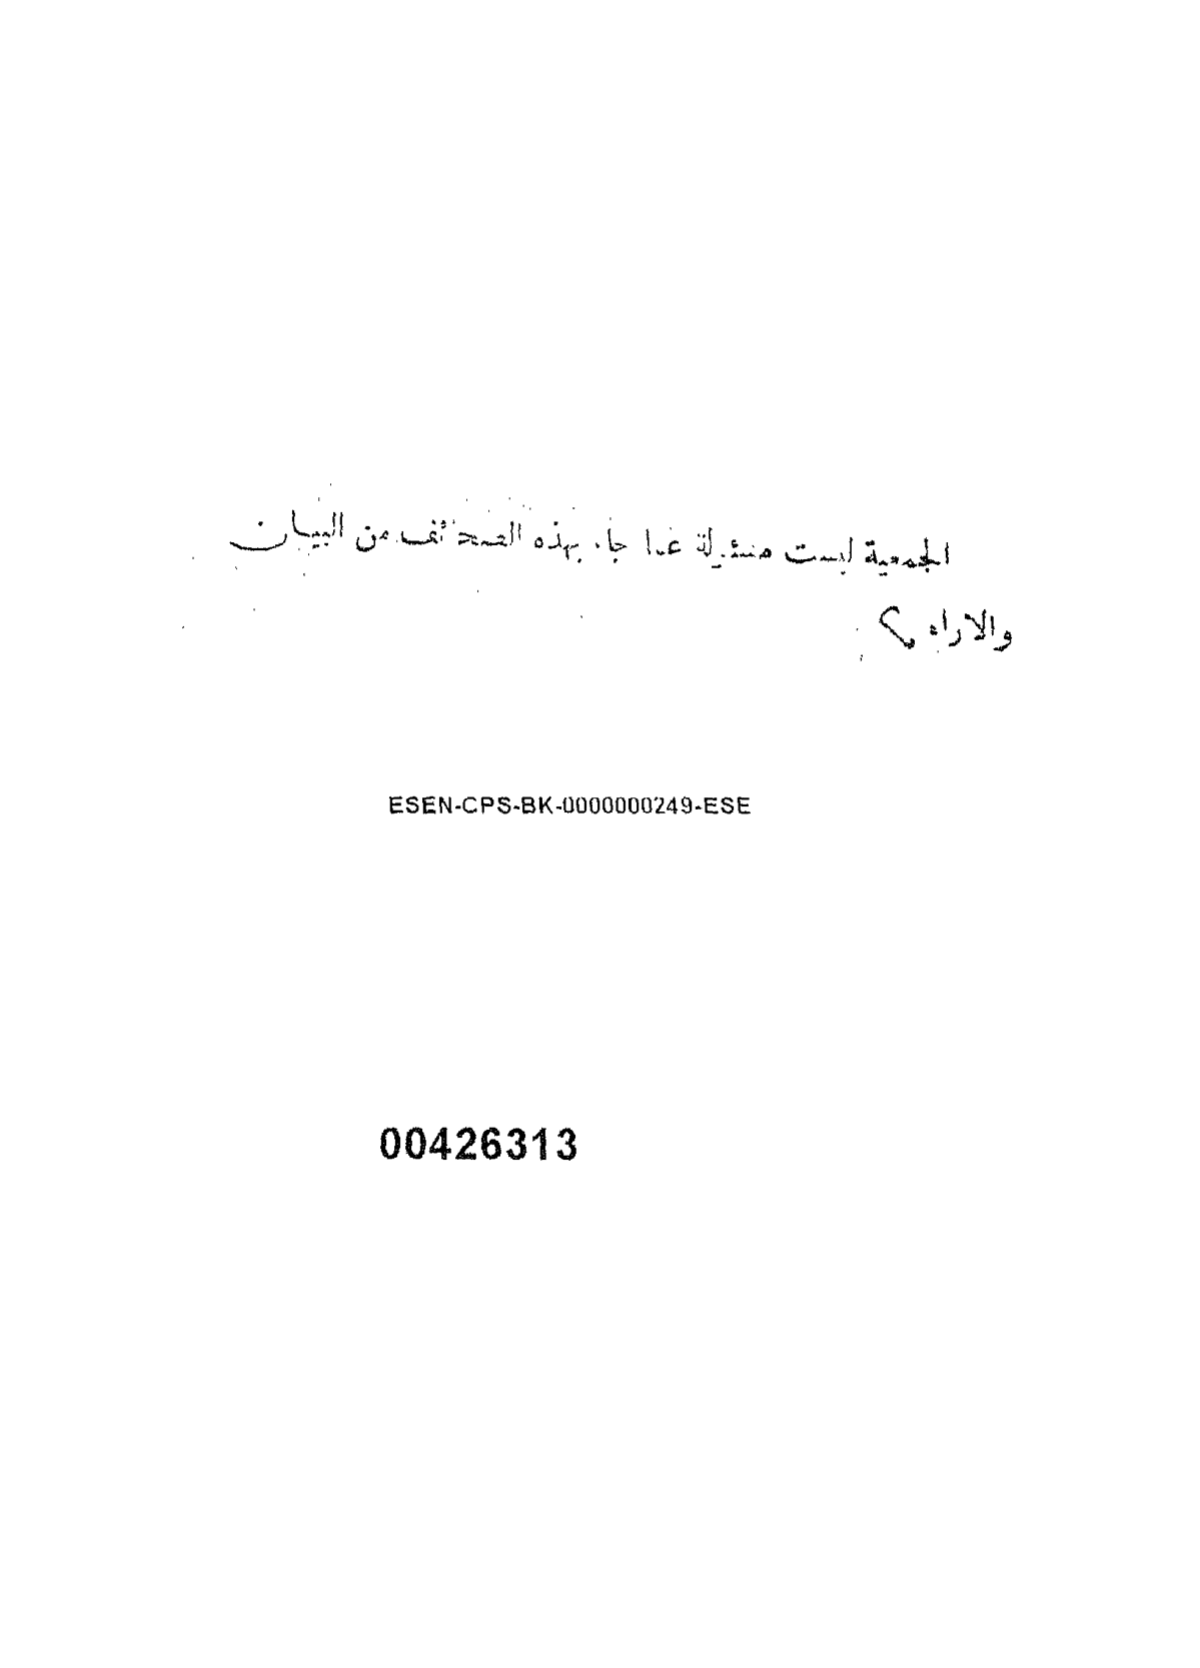 الجمعية ليست مسئولة عما جاء بهذه الصحائف من البيان
والاراء
ESEN-CPS-BK-0000000249-ESE
00426313